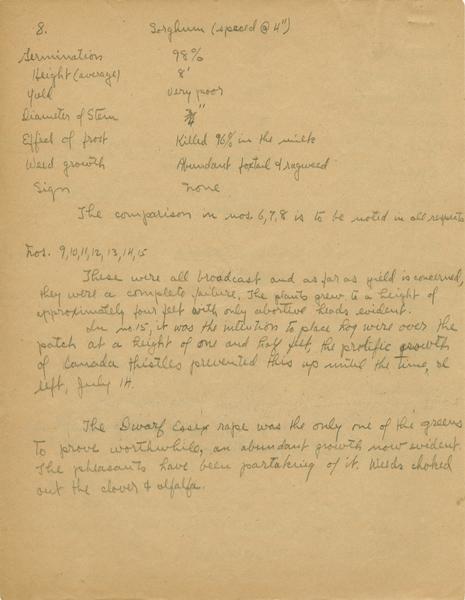 8. Sorghum (spaced @ 4")
Germination 98%
Height (average) 8'
Yield Very poor
Diameter of Stem ¾"
Effect of frost Killed 96% in the milk
Weed growth Abundant foxtail & ragweed
Sign none
The comparison in nos. 6,7,8 is to be noted in all respects
Nos. 9,10,11,12,13,14,15
These were all broadcast and as far as yield is concerned,
they were a complete failure. The plants grew to a height of
approximately four feet with only abortive heads evident.
In no. 15, it was the intention to place hog wire over the
patch at a height of one and half feet, the prolific growth
of Canada thistles prevented this up until the time, I
left, July 14.
The Dwarf Essex rape was the only one of the greens
to prove worthwhile, an abundant growth now evident.
The pheasants have been partaking of it. Weeds choked
out the clover & alfalfa.